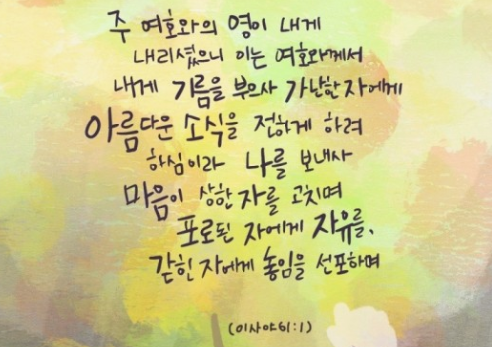 주 여호와의 영이 내게
내리셨으니 이는 여호와께서
내게 기름을 부으사 가난한 자에게
아름다운 소식을 전하게 하려
하심이라 나를 보내사
마음이 상한 자를 고치며
포로된 자에게 자유를,
갇힌 자에게 놓임을 선포하며
(이사야61:1)